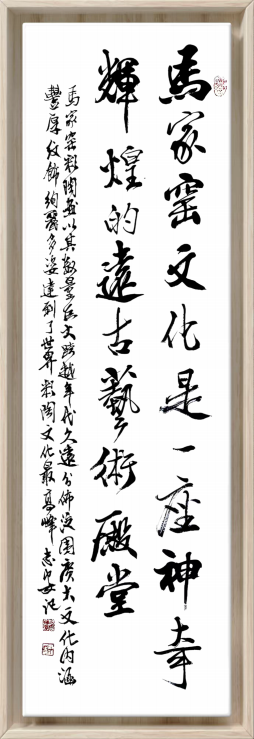 馬家窑文化是一座神奇
輝煌的遠古藝術殿堂
馬家窑彩陶並以其數量巨大跨越年代久遠分佈范圍廣大文化内涵
豐厚紋飾絢麗多姿達到了世界彩陶文化最高峰